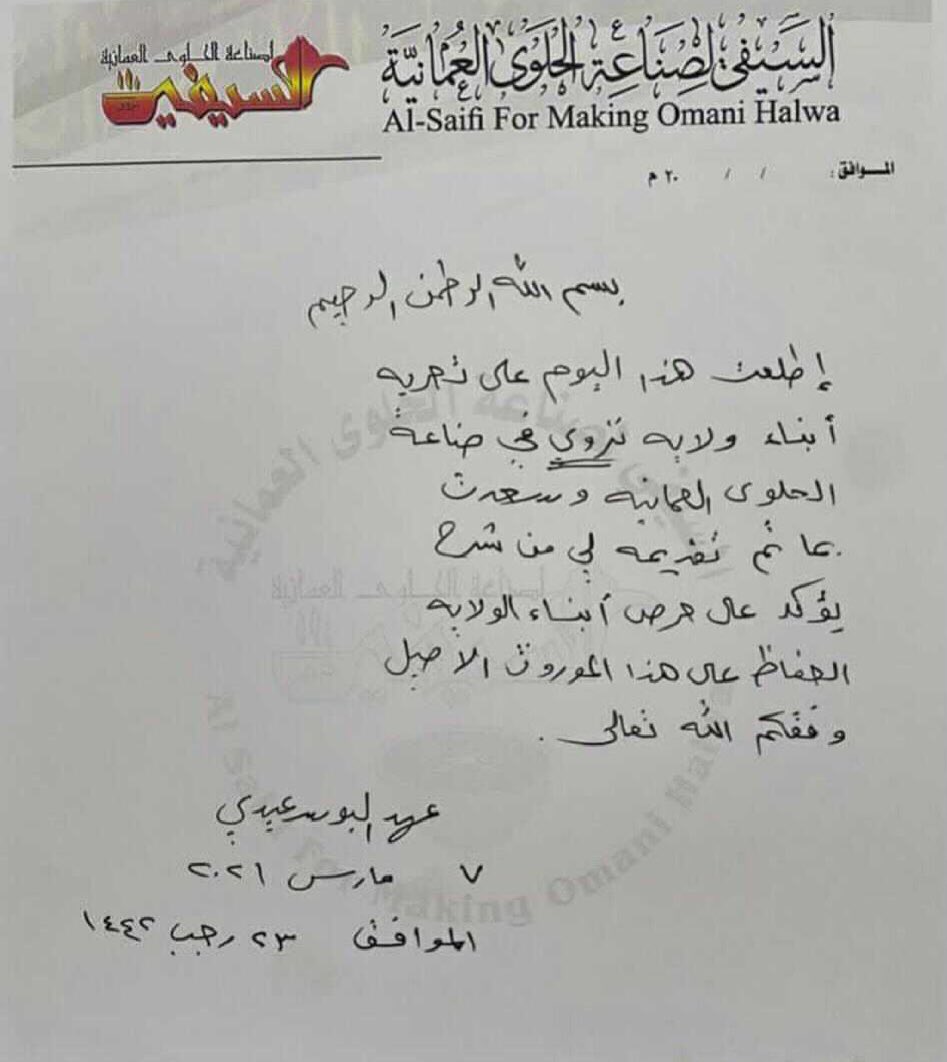 لصناعة الحلوى العمانية
السيفي
السيفي لصناعة الحلوى العمانية
Al-Saifi For Making Omani Halwa
الموافق : / / ٢٠ م
بسم الله الرحمن الرحيم
إطلعت هذا اليوم على تجربه
أبناء ولايه نزوى في صناعة
الحلوى العمانيه وسعدت
بما تم تقديمه لي من شرح
يؤكد على حرص أبناء الولايه
الحفاظ على هذا الموروث الأصيل
وفقكم الله تعالى .
عهد البوسعيدي
٧ مارس ٢٠٢١
الموافق ٢٣ رجب ١٤٤٢
السيفي لصناعة الحلوى العمانية
لصناعة الحلوى العمانية
Al Saifi For Making Omani Halwa